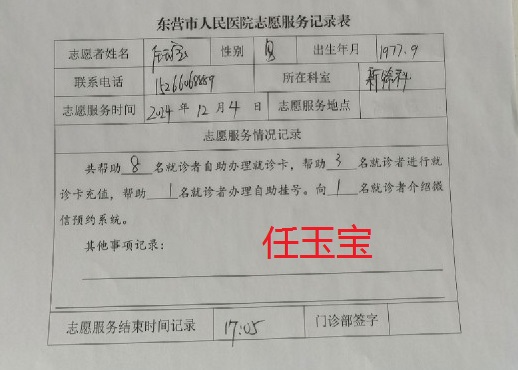 东营市人民医院志愿服务记录表
志愿者姓名 任玉宝 性别 男 出生年月 1977.9
联系电话 15266068889 所在科室
志愿服务时间 2024年12月4日 志愿服务地点
志愿服务情况记录
共帮助8名就诊者自助办理就诊卡，帮助3名就诊者进行就
诊卡充值，帮助1名就诊者办理自助挂号。向1名就诊者介绍微
信预约系统。
其他事项记录：
任玉宝
志愿服务结束时间记录 17:05 门诊部签字